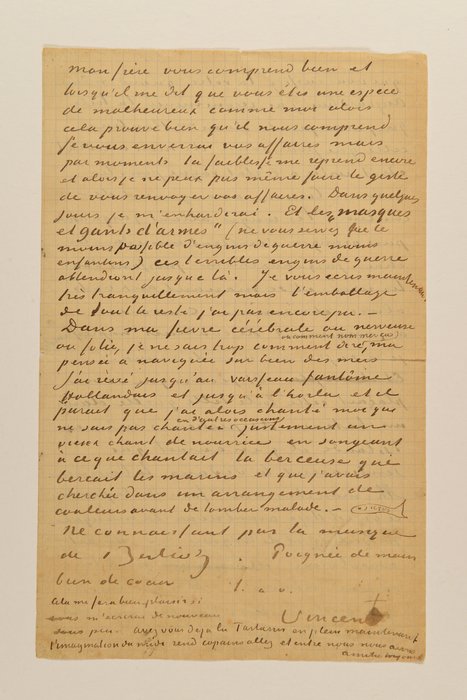 mon frère vous comprend bien et
lorsqu'il me dit que vous êtes une espèce
de malheureux comme moi alors
cela prouve bien qu'il nous comprend
Je vous enverrai vos affaires mais
par moments la faiblesse me reprend encore
et alors je ne peux pas même faire le geste
de vous renvoyer vos affaires. Dans quelques
jours je m'enhardirai. Et les "masques
et gants d'armes" (ne vous servez que le
moins possible d'engins de guerre moins
enfantins) ces terribles engins de guerre
attendront jusque là. Je vous écris maintenant
très tranquillement mais l'emballage
de tout le reste j'ai pas encore pu. –
Dans ma fièvre cérébrale ou nerveuse
ou folie, je ne sais trop comment dire,
ou comment nommer ça, ma
pensée a naviguée sur bien des mers
J'ai rêvé jusqu'au vaisseau fantôme
Hollandais et jusqu'à l'horla et il
parait que j'ai alors chanté moi qui
ne sais pas chanter en d'autres occasions justement un
vieux chant de nourrice en songeant
à ce que chantait la berceuse qui
berçait les marins et que j'avais
cherchée dans un arrangement de
couleurs avant de tomber malade. –
Ne connaissant pas la musique
de Berlioz. Poignée de main
bien de coeur t. a v.
Cela me fera bien plaisir si
vous m'écrivez de nouveau Vincent
sous peu. avez vous déjà lu Tartarin en plein maintenant
l'imagination du midi rend copains allez et entre nous nous avons
amitié toujours